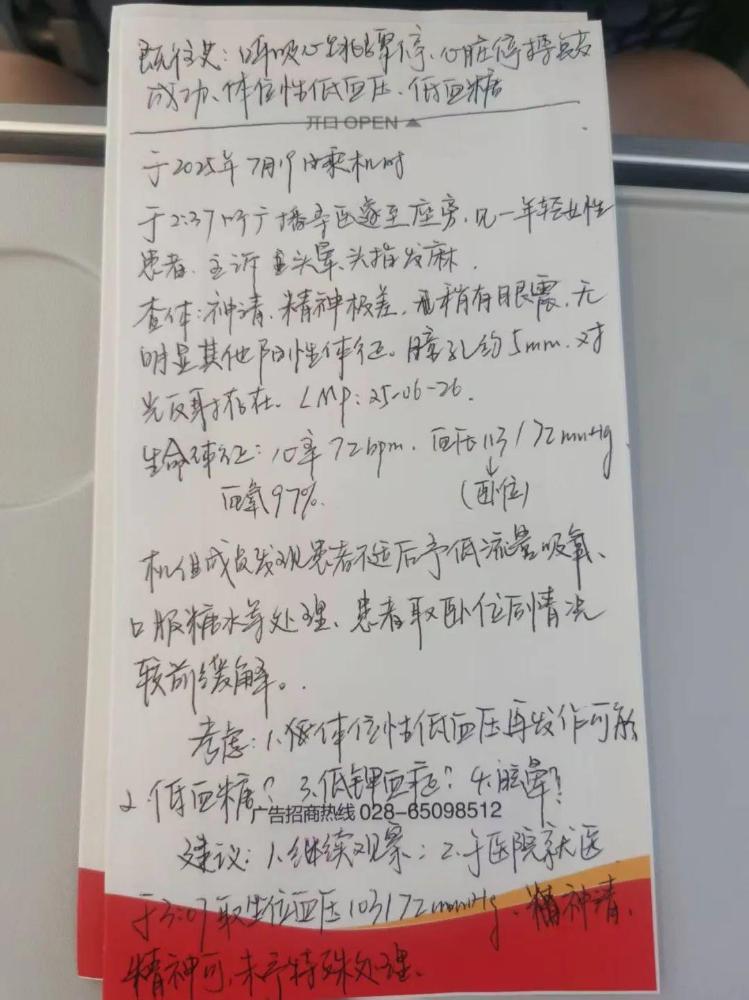 既往史：呼吸心跳骤停、心脏停搏复苏
成功、体位性低血压、低血糖
开口 OPEN
于2025年7月19日乘机时
于2:37听广播寻医遂至座旁，见一年轻女性
患者，主诉头晕、头指发麻.
查体：神清，精神极差，稍有眼震，无
明显其他阳性体征。瞳孔约5mm，对
光反射存在. LMP：25-06-26.
生命体征：心率72bpm. 血压113/72mmHg.
血氧97%. (卧位)
机组成员发现患者不适后予低流量吸氧、
口服糖水等处理、患者取卧位后情况
较前缓解。
考虑：1.体位性低血压再发作可能
2.低血糖？3.低钾血症？4.眩晕？
广告招商热线 028-65098512
建议：1.继续观察；2.于医院就医
于3:07取坐位血压103/72mmHg、神清、
精神可，未予特殊处理.